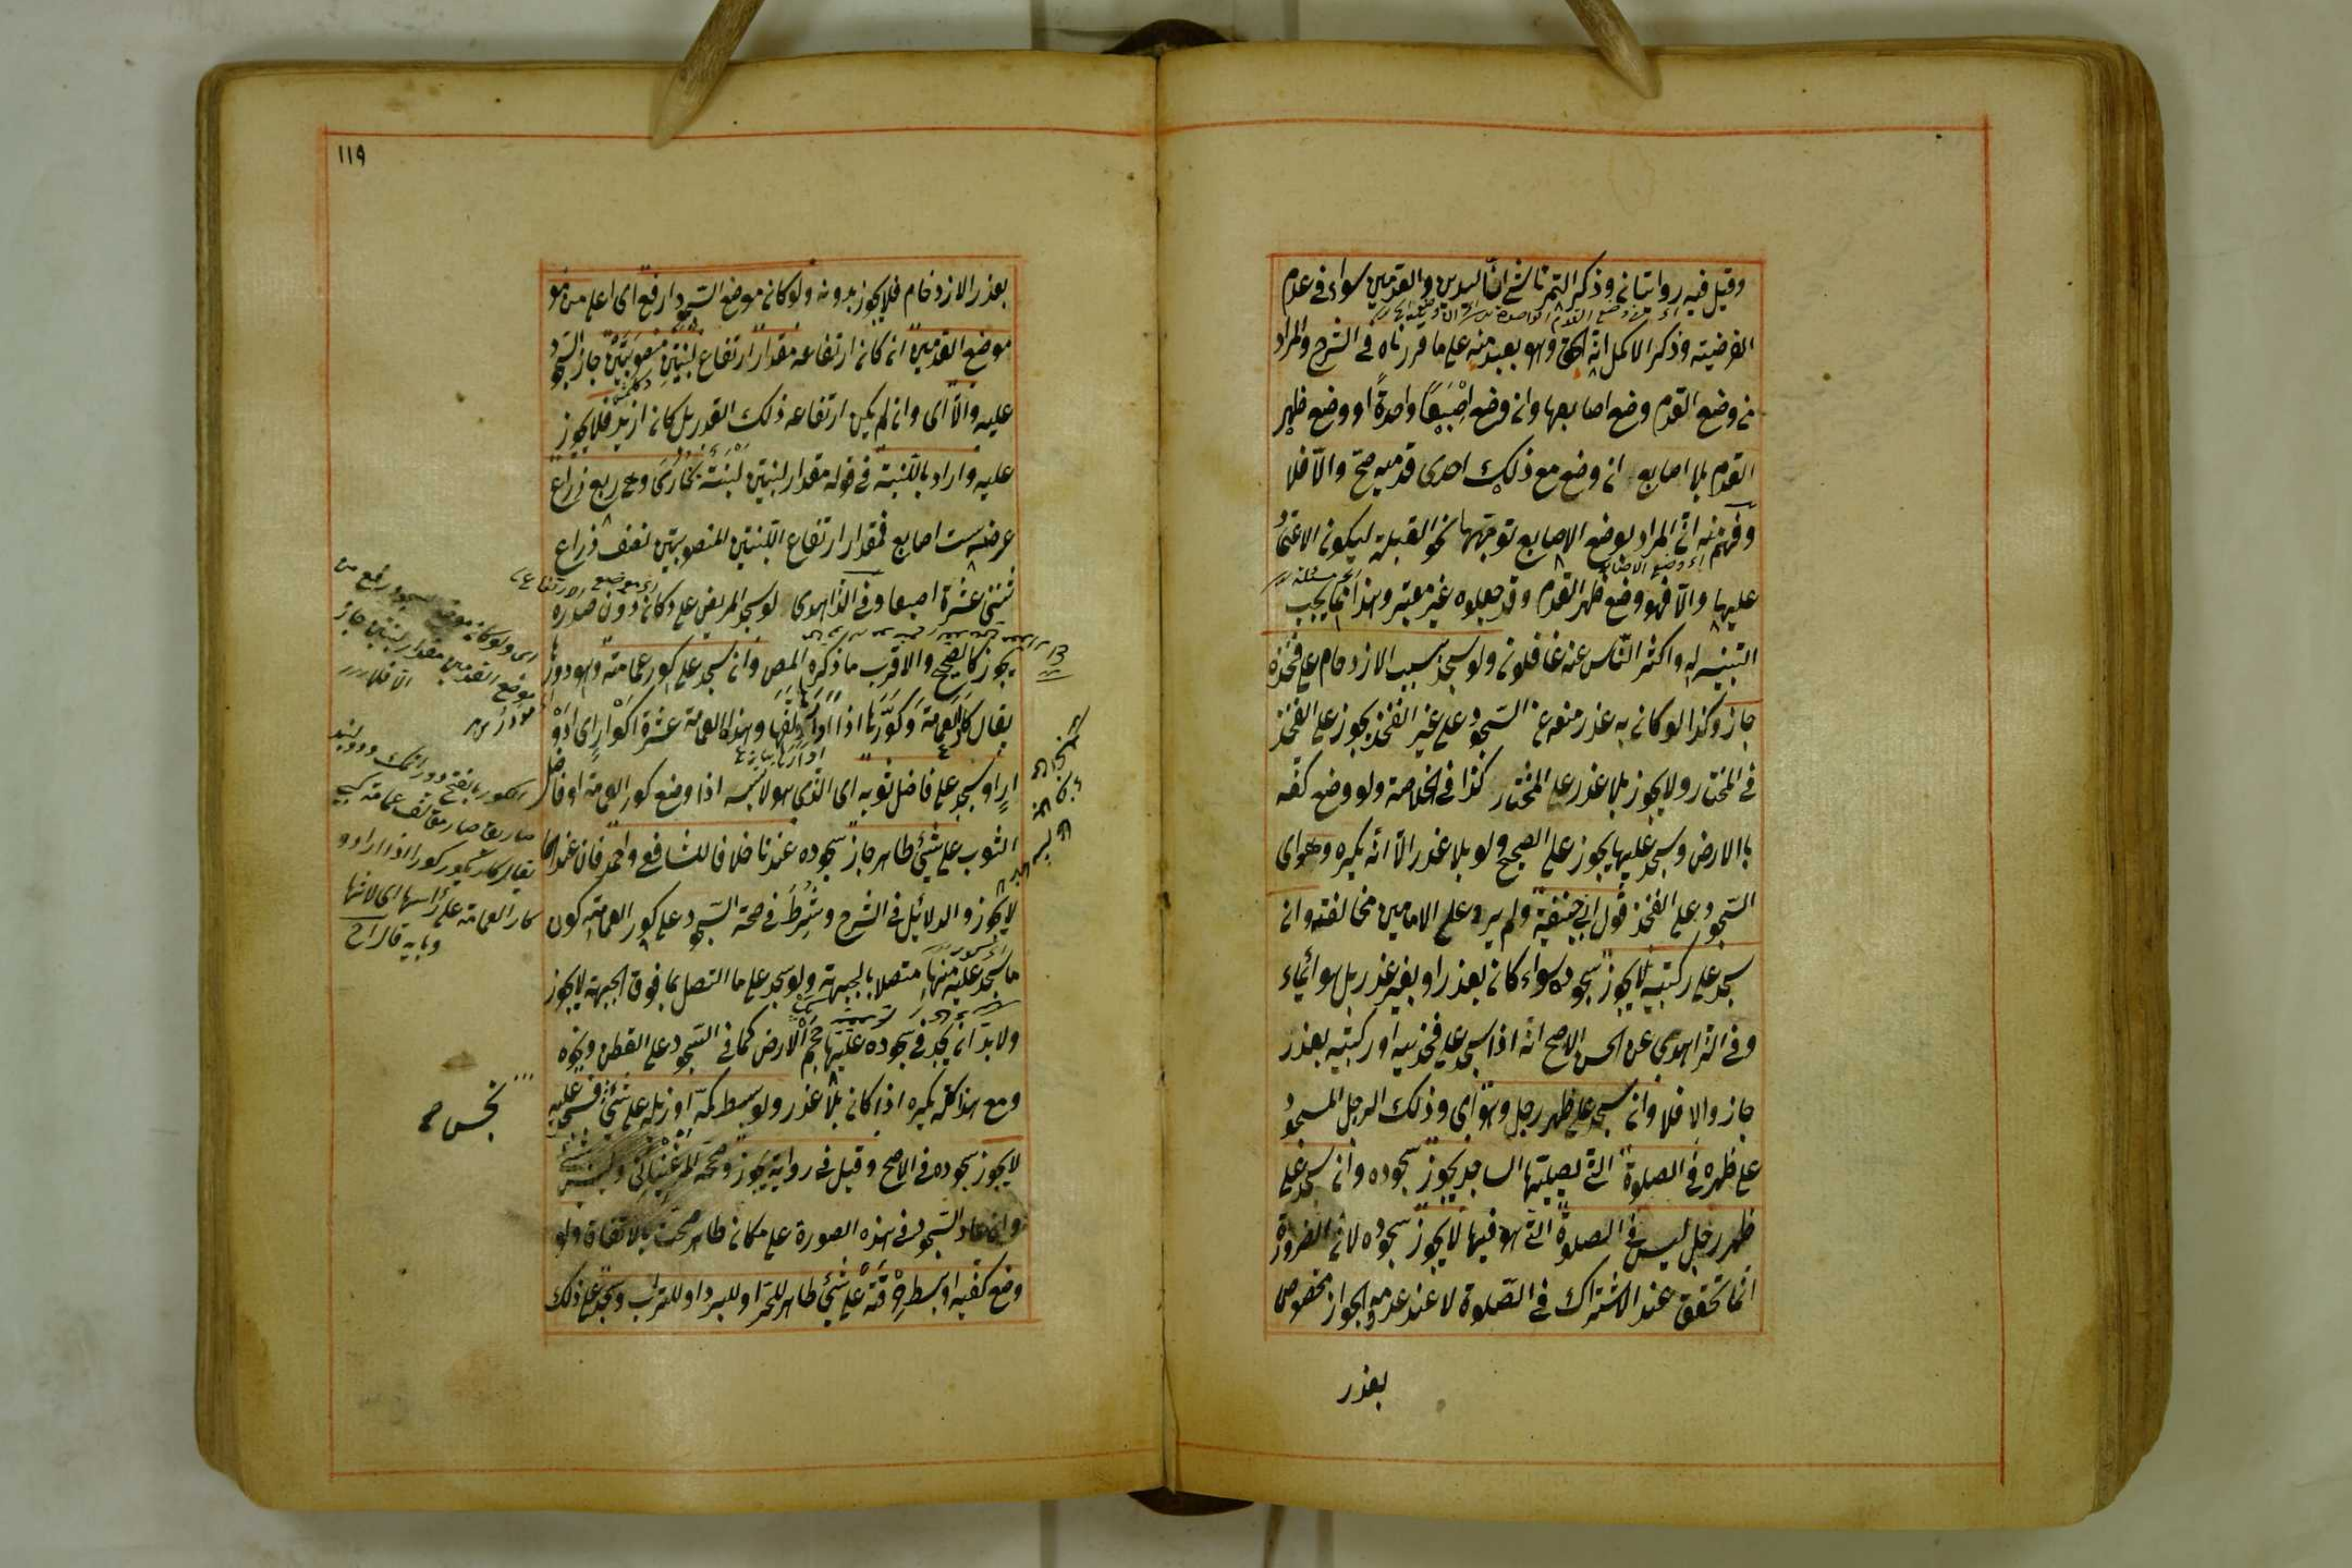 وقيل فيه روايتان وذكر التمرتاشي انّ اليدين والقدمين سواء في عدم
الفرضيته وذكر الاكمل انّه الحق وهو بعيد منه على ما قررناه في الشرح والمراد
من وضع القدم وضع اصابعها وان وضع اِصْبَعًا واحدةً او وضع ظهر
القدم بلا اصابع ان وضع مع ذلك احدى قدميه صحّ والاّ فلا
وفهم منه انّ المراد بوضع الاصابع توجهها نحو القبلة ليكون الاعتماد
عليها والاّ فهو وضع ظهر القدم وقد جعلوه غير معتبر وهذا ممّا يجب
التنبّه له واكثر النّاس عنه غافلون ولو سجد بسبب الازدحام على فخذه
جاز وكذا لو كان به عذر منعه عن السّجود على غير الفخذ يجوز على الفخذ
في المختار ولا يجوز بلا عذر على المختار كذا في الخلاصة ولو وضع كفّه
بالارض وسجد عليها يجوز على الصحيح ولو بلا عذر الاّ انّه يكره وهو اى
السّجود على الفخذ قول ابي حنيفة ولم يرد على الامامين مخالفته وان
سجد على ركبتيه لا يجوز سجوده سواء كان بعذر او بغير عذر بل هو ائماء
وفي الزاهدي عن الحسن الاصح انّه اذا سجد على فخذيه او ركبتيه بعذر
جاز والا فلا وان سجد على ظهر رجل وهو اى وذلك الرجل المسجود
على ظهره في الصلوة التي يصليها الساجد يجوز سجوده وان سجد على
ظهر رجل ليس في الصلوة التي هو فيها لا يجوز سجوده لانّ الضرورة
انّما تتحقق عند الاشتراك في الصّلوة لا عند عدمه والجواز مخصوص
بعذر
١١٩
بعذر الازدحام فلا يجوز بدونه ولو كان موضع السّجود ارفع اى اعلى من
موضع القدمين ان كان ارتفاعه مقدار ارتفاع لبنتين منصوبتين جاز السّجود
عليه والاّ اى وان لم يكن ارتفاعه ذلك القدر بل كان ازيد فلا يجوز
عليه واراد باللّبنة في قوله مقدار لبنتين لبنة بخارى وهي ربع ذراع
عرض ست اصابع فمقدار ارتفاع اللّبنتين المنصوبتين نصف ذراع
ثنتى عشرة اصبعا وفي الزاهدى لو سجد المريض على دكان دون صدره
يجوز كالصحيح والاقرب ما ذكره المص وان سجد على كور عمامته وهو دورها
يقال كار العمامة وكوّرها اذا ادارها ولفّها وهذه العمامة عشرة اكوار اى
او سجد على فاضل ثوبه اى الذى هو لابسه اذا وضع كور العمامة او فاضل
الثوب على شيئ طاهر جاز سجوده عندنا خلافا للشافعي واحمد فان عندهما
لا يجوز والدلائل في الشرح وشرط في صحة السّجود على كور العمامة كون
ما سجد عليه منها متصلا بالجبهة ولو سجد على ما اتصل بما فوق الجبهة لا يجوز
ولا بدّ ان يجد في سجوده عليها حجم الارض كما في السّجود على القطن ونحوه
ومع هذا كلّه يكره اذا كان بلا عذر ولو بسط كمّه او ذيله على شيئ نجس فسجد عليه
لا يجوز سجوده في الاصح وقيل في رواية يجوز وصححه المرغيناني وليس بشيئ
وان عاد السّجود في هذه الصورة على مكان طاهر صحت بالاتفاق ولو
وضع كفّيه او بسط خرقة على شيئ طاهر للحرّ او للبرد او للتراب وسجد على ذلك
اى ولو كان موضع السجود ارفع من
موضع القدمين مقدار لبنتين جاز
الاّ فلا
كار العمامة على رأسها اى لاثها
وبابه قال
نجس